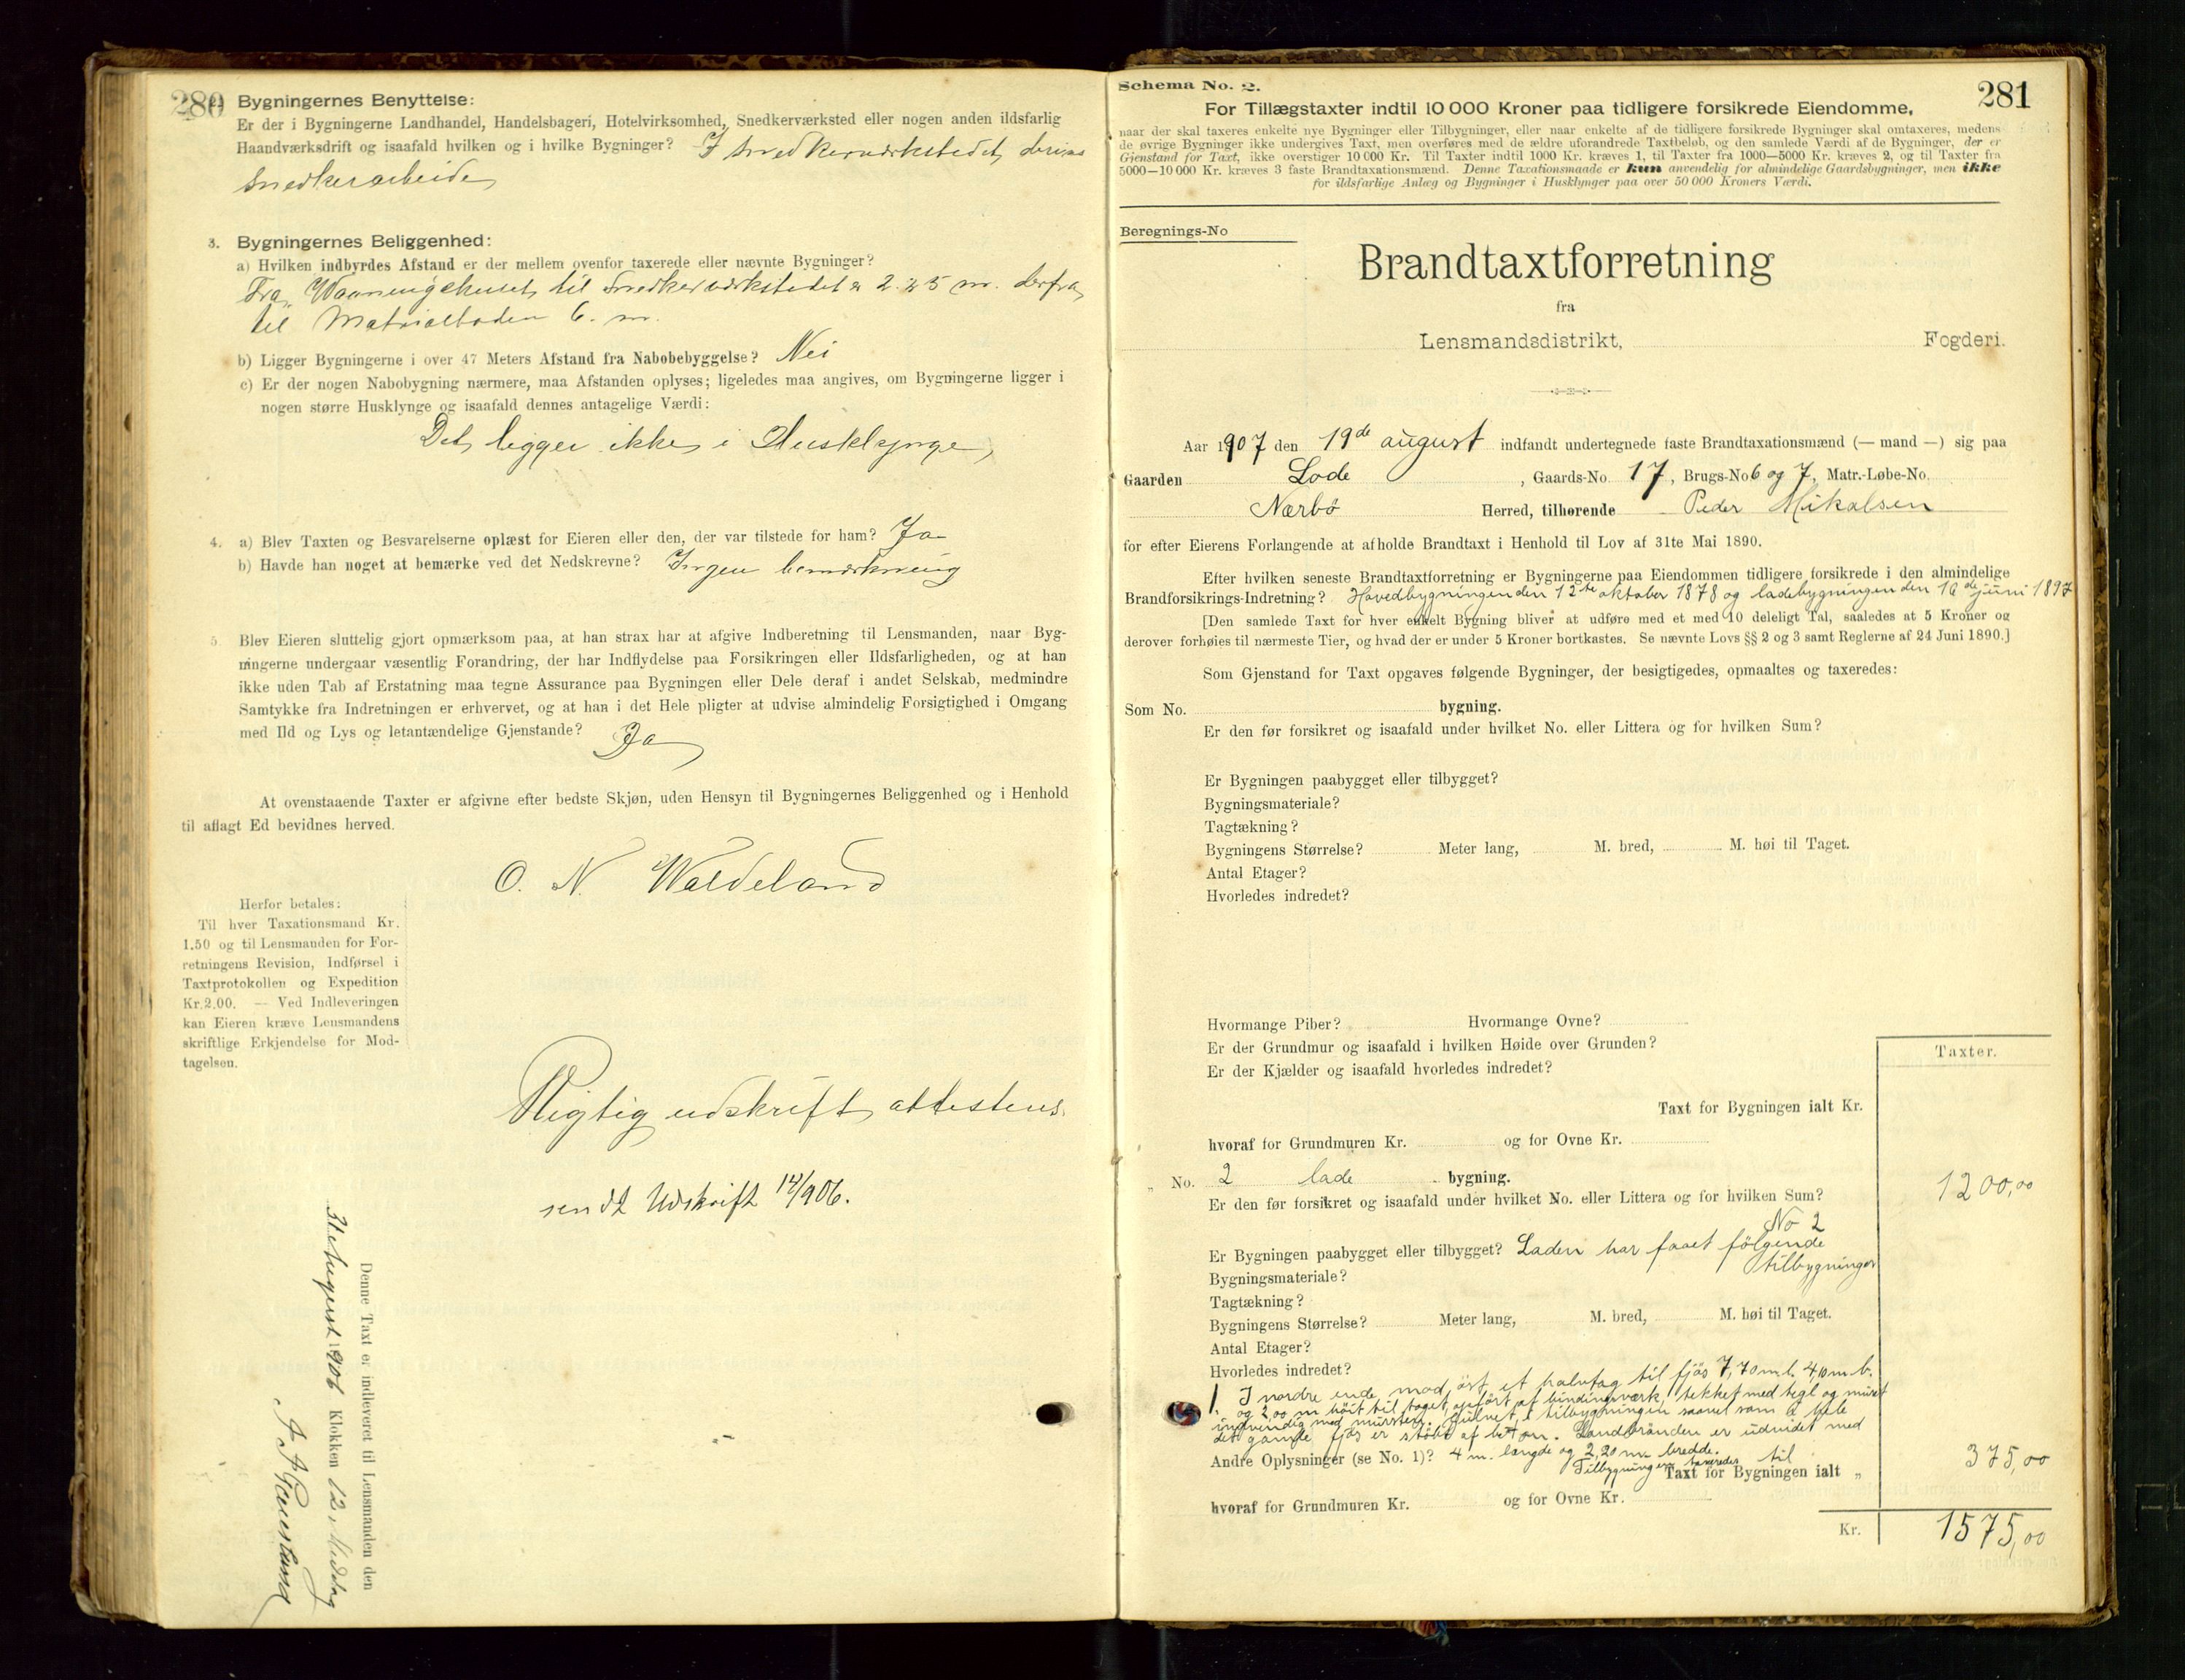 280
2. Bygningernes Benyttelse:
Er der i Bygningerne Landhandel, Handelsbageri, Hotelvirksomhed, Snedkerværksted eller nogen anden ildsfarlig
Haandværksdrift og isaafald hvilken og i hvilke Bygninger? I Snedkerværkstedet drives
Snedkerarbeide
3. Bygningernes Beliggenhed:
a) Hvilken indbyrdes Afstand er der mellem ovenfor taxerede eller nævnte Bygninger?
Fra Waaningshuset til Snedkerværkstedet er 2.25 m. derfra
til Matrialboden 6. m.
b) Ligger Bygningerne i over 47 Meters Afstand fra Nabobebyggelse? Nei
c) Er der nogen Nabobygning nærmere, maa Afstanden oplyses; ligeledes maa angives, om Bygningerne ligger i
nogen større Husklynge og isaafald dennes antagelige Værdi:
Det ligger ikke i Husklynge
4. a) Blev Taxten og Besvarelserne oplæst for Eieren eller den, der var tilstede for ham? Ja
b) Havde han noget at bemærke ved det Nedskrevne? Ingen bemærkning
5. Blev Eieren sluttelig gjort opmærksom paa, at han strax har at afgive Indberetning til Lensmanden, naar Byg-
ningerne undergaar væsentlig Forandring, der har Indflydelse paa Forsikringen eller Ildsfarligheden, og at han
ikke uden Tab af Erstatning maa tegne Assurance paa Bygningen eller Dele deraf i andet Selskab, medmindre
Samtykke fra Indretningen er erhvervet, og at han i det Hele pligter at udvise almindelig Forsigtighed i Omgang
med Ild og Lys og letantændelige Gjenstande? Ja
At ovenstaaende Taxter er afgivne efter bedste Skjøn, uden Hensyn til Bygningernes Beliggenhed og i Henhold
til aflagt Ed bevidnes herved.
O. N. Waldeland
Herfor betales:
Til hver Taxationsmand Kr.
1.50 og til Lensmanden for For-
retningens Revision, Indførsel i
Taxtprotokollen og Expedition
Kr. 2.00. — Ved Indleveringen
kan Eieren kræve Lensmandens
skriftlige Erkjendelse for Mod-
tagelsen.
Rigtig udskrift attesteres.
sendt Udskrift 14/9 06.
Denne Taxt er indleveret til Lensmanden den
31te August 1906 Klokken 12, Middag
Schema No. 2.
281
For Tillægstaxter indtil 10 000 Kroner paa tidligere forsikrede Eiendomme,
naar der skal taxeres enkelte nye Bygninger eller Tilbygninger, eller naar enkelte af de tidligere forsikrede Bygninger skal omtaxeres, medens
de øvrige Bygninger ikke undergives Taxt, men overføres med de ældre uforandrede Taxtbeløb, og den samlede Værdi af de Bygninger, der er
Gjenstand for Taxt, ikke overstiger 10 000 Kr. Til Taxter indtil 1000 Kr. kræves 1, til Taxter fra 1000—5000 Kr. kræves 2, og til Taxter fra
5000—10 000 Kr. kræves 3 faste Brandtaxationsmænd. Denne Taxationsmaade er kun anvendelig for almindelige Gaardsbygninger, men ikke
for ildsfarlige Anlæg og Bygninger i Husklynger paa over 50 000 Kroners Værdi.
Beregnings-No
Brandtaxtforretning
fra
Lensmandsdistrikt, Fogderi.
Aar 1907 den 19de august indfandt undertegnede faste Brandtaxationsmænd (— mand —) sig paa
Gaarden Lode, Gaards-No. 17, Brugs-No 6 og 7, Matr.-Løbe-No.
Nærbø Herred, tilhørende Peder Mikalsen
for efter Eierens Forlangende at afholde Brandtaxt i Henhold til Lov af 31te Mai 1890.
Efter hvilken seneste Brandtaxtforretning er Bygningerne paa Eiendommen tidligere forsikrede i den almindelige
Brandforsikrings-Indretning? Hovedbygningen den 12te oktober 1878 og ladebygningen den 16de juni 1897
[Den samlede Taxt for hver enkelt Bygning bliver at udføre med et med 10 deleligt Tal, saaledes at 5 Kroner og
derover forhøies til nærmeste Tier, og hvad der er under 5 Kroner bortkastes. Se nævnte Lovs §§ 2 og 3 samt Reglerne af 24 Juni 1890.]
Som Gjenstand for Taxt opgaves følgende Bygninger, der besigtigedes, opmaaltes og taxeredes:
Som No. bygning.
Er den før forsikret og isaafald under hvilket No. eller Littera og for hvilken Sum?
Er Bygningen paabygget eller tilbygget?
Bygningsmateriale?
Tagtækning?
Bygningens Størrelse? Meter lang, M. bred, M. høi til Taget.
Antal Etager?
Hvorledes indredet?
Hvormange Piber? Hvormange Ovne?
Er der Grundmur og isaafald i hvilken Høide over Grunden?
Er der Kjælder og isaafald hvorledes indredet?
Taxter.
Taxt for Bygningen ialt Kr.
hvoraf for Grundmuren Kr. og for Ovne Kr.
„ No. 2 lade bygning. 1200,00
Er den før forsikret og isaafald under hvilket No. eller Littera og for hvilken Sum?
No 2
Er Bygningen paabygget eller tilbygget? Laden har faaet følgende
tilbygninger
Bygningsmateriale?
Tagtækning?
Bygningens Størrelse? Meter lang, M. bred, M. høi til Taget.
Antal Etager?
Hvorledes indredet?
1. I nordre ende mod øst et halvtag til fjøs 7,70 m l. 4,10 m b.
og 2,00 m høit til taget, opført af bindingsværk, tekket med tegl og muret
indvendig med mursten. Gulvet i tilbygningen saavel som i hele
det gamle fjøs er støbt af beton. Landbrønden er udvidet med
Andre Oplysninger (se No. 1)? 4 m. længde og 2,20 m bredde.
Tilbygningen taxeredes til
Taxt for Bygningen ialt „ 375,00
hvoraf for Grundmuren Kr. og for Ovne Kr.
Kr. 1575,00